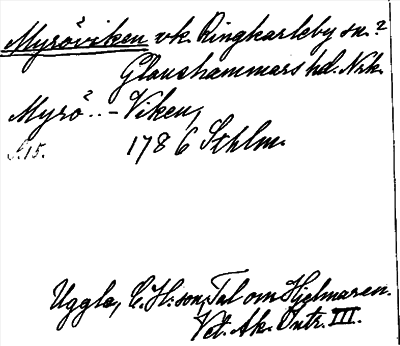 Myröviken vk. Ringkarleby sn.?
Glanshammars hd. Nrk.
Myrö..-Viken,
S.15. 1786 Sthlm.
Uggla, C. H:son, Tal om Hjelmaren.
Vet. Ak. Intr. III.